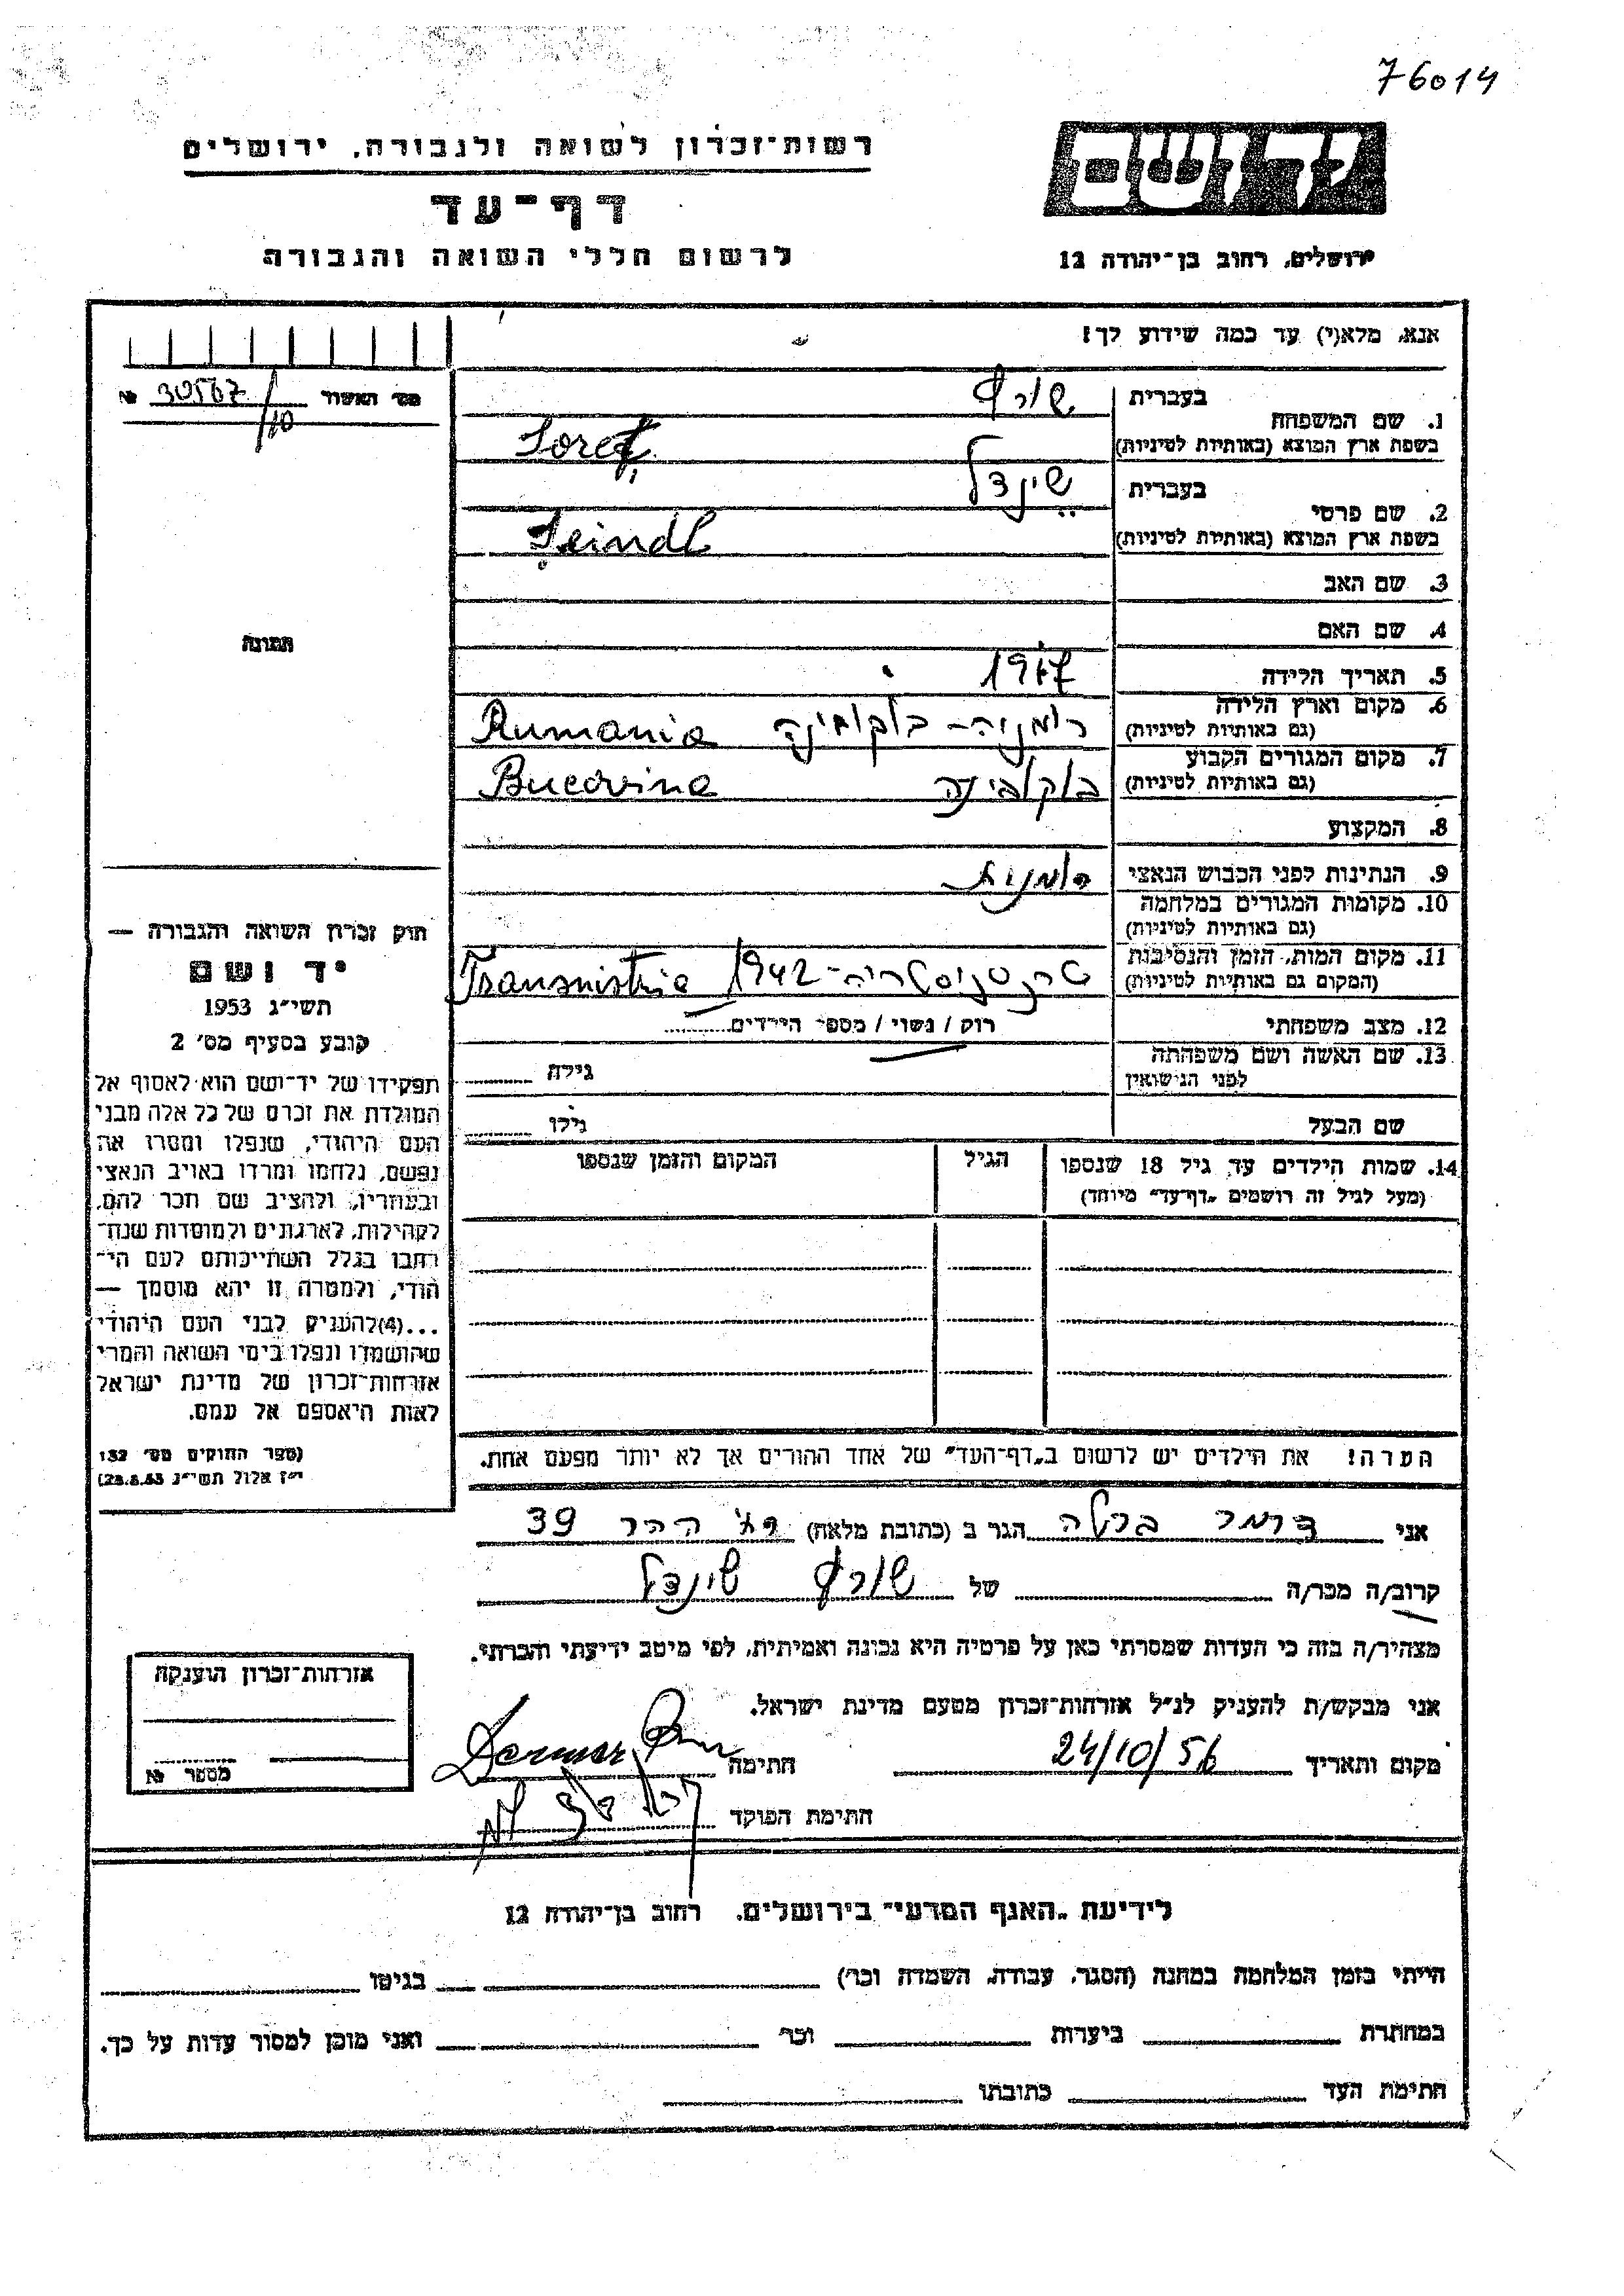 76014
יד ושם
ירושלים, רחוב בן-יהודה 12
רשות-זכרון לשואה ולגבורה, ירושלים
דף-עד
לרשום חללי השואה והגבורה
אנא, מלא(י) עד כמה שידוע לך!
מס' האשור 30567/10 №
1. שם המשפחה
בעברית שורף
בשפת ארץ המוצא (באותיות לטיניות) Şoref
2. שם פרטי
בעברית שיינדל
בשפת ארץ המוצא (באותיות לטיניות) Şeindl
3. שם האב
4. שם האם
5. תאריך הלידה 1917
6. מקום וארץ הלידה
(גם באותיות לטיניות) רומניה - בוקובינה Rumania
7. מקום המגורים הקבוע
(גם באותיות לטיניות) בוקובינה Bucovina
8. המקצוע
9. הנתינות לפני הכבוש הנאצי רומנית
10. מקומות המגורים במלחמה
(גם באותיות לטיניות)
11. מקום המות, הזמן והנסיבות
(המקום גם באותיות לטיניות) טרנסניסטריה - 1942 Transnistria
12. מצב משפחתי רוק / נשוי / מספר הילדים
13. שם האשה ושם משפחתה
לפני הנישואין גילה
שם הבעל גילו
14. שמות הילדים עד גיל 18 שנספו
(מעל לגיל זה רושמים „דף-עד" מיוחד)
הגיל
המקום והזמן שנספו
הערה! את הילדים יש לרשום ב„דף-העד" של אחד ההורים אך לא יותר מפעם אחת.
תמונה
חוק זכרון השואה והגבורה —
יד ושם
תשי"ג 1953
קובע בסעיף מס' 2
תפקידו של יד-ושם הוא לאסוף אל
המולדת את זכרם של כל אלה מבני
העם היהודי, שנפלו ומסרו את
נפשם, נלחמו ומרדו באויב הנאצי
ובעוזריו, ולהציב שם וזכר להם,
לקהילות, לארגונים ולמוסדות שנח-
רבו בגלל השתייכותם לעם הי-
הודי, ולמטרה זו יהא מוסמך —
...(4)להעניק לבני העם היהודי
שהושמדו ונפלו בימי השואה והמרי
אזרחות-זכרון של מדינת ישראל
לאות היאספם אל עמם.
(ספר החוקים מס' 132
י"ז אלול תשי"ג 28.8.53)
אני דרמר ברטה הגר ב (כתובת מלאה) רח' ההר 39
קרוב/ה מכר/ה של שורף שיינדל
מצהיר/ה בזה כי העדות שמסרתי כאן על פרטיה היא נכונה ואמיתית, לפי מיטב ידיעתי והכרתי.
אני מבקש/ת להעניק לנ"ל אזרחות-זכרון מטעם מדינת ישראל.
מקום ותאריך 24/10/56 חתימה Dermer
חתימת הפוקד
אזרחות-זכרון הוענקה
מספר №
לידיעת „האגף המדעי" בירושלים, רחוב בן-יהודה 12
הייתי בזמן המלחמה במחנה (הסגר, עבודה, השמדה וכו') בגיטו
במחתרת ביערות וכו' ואני מוכן למסור עדות על כך.
חתימת העד כתובתו